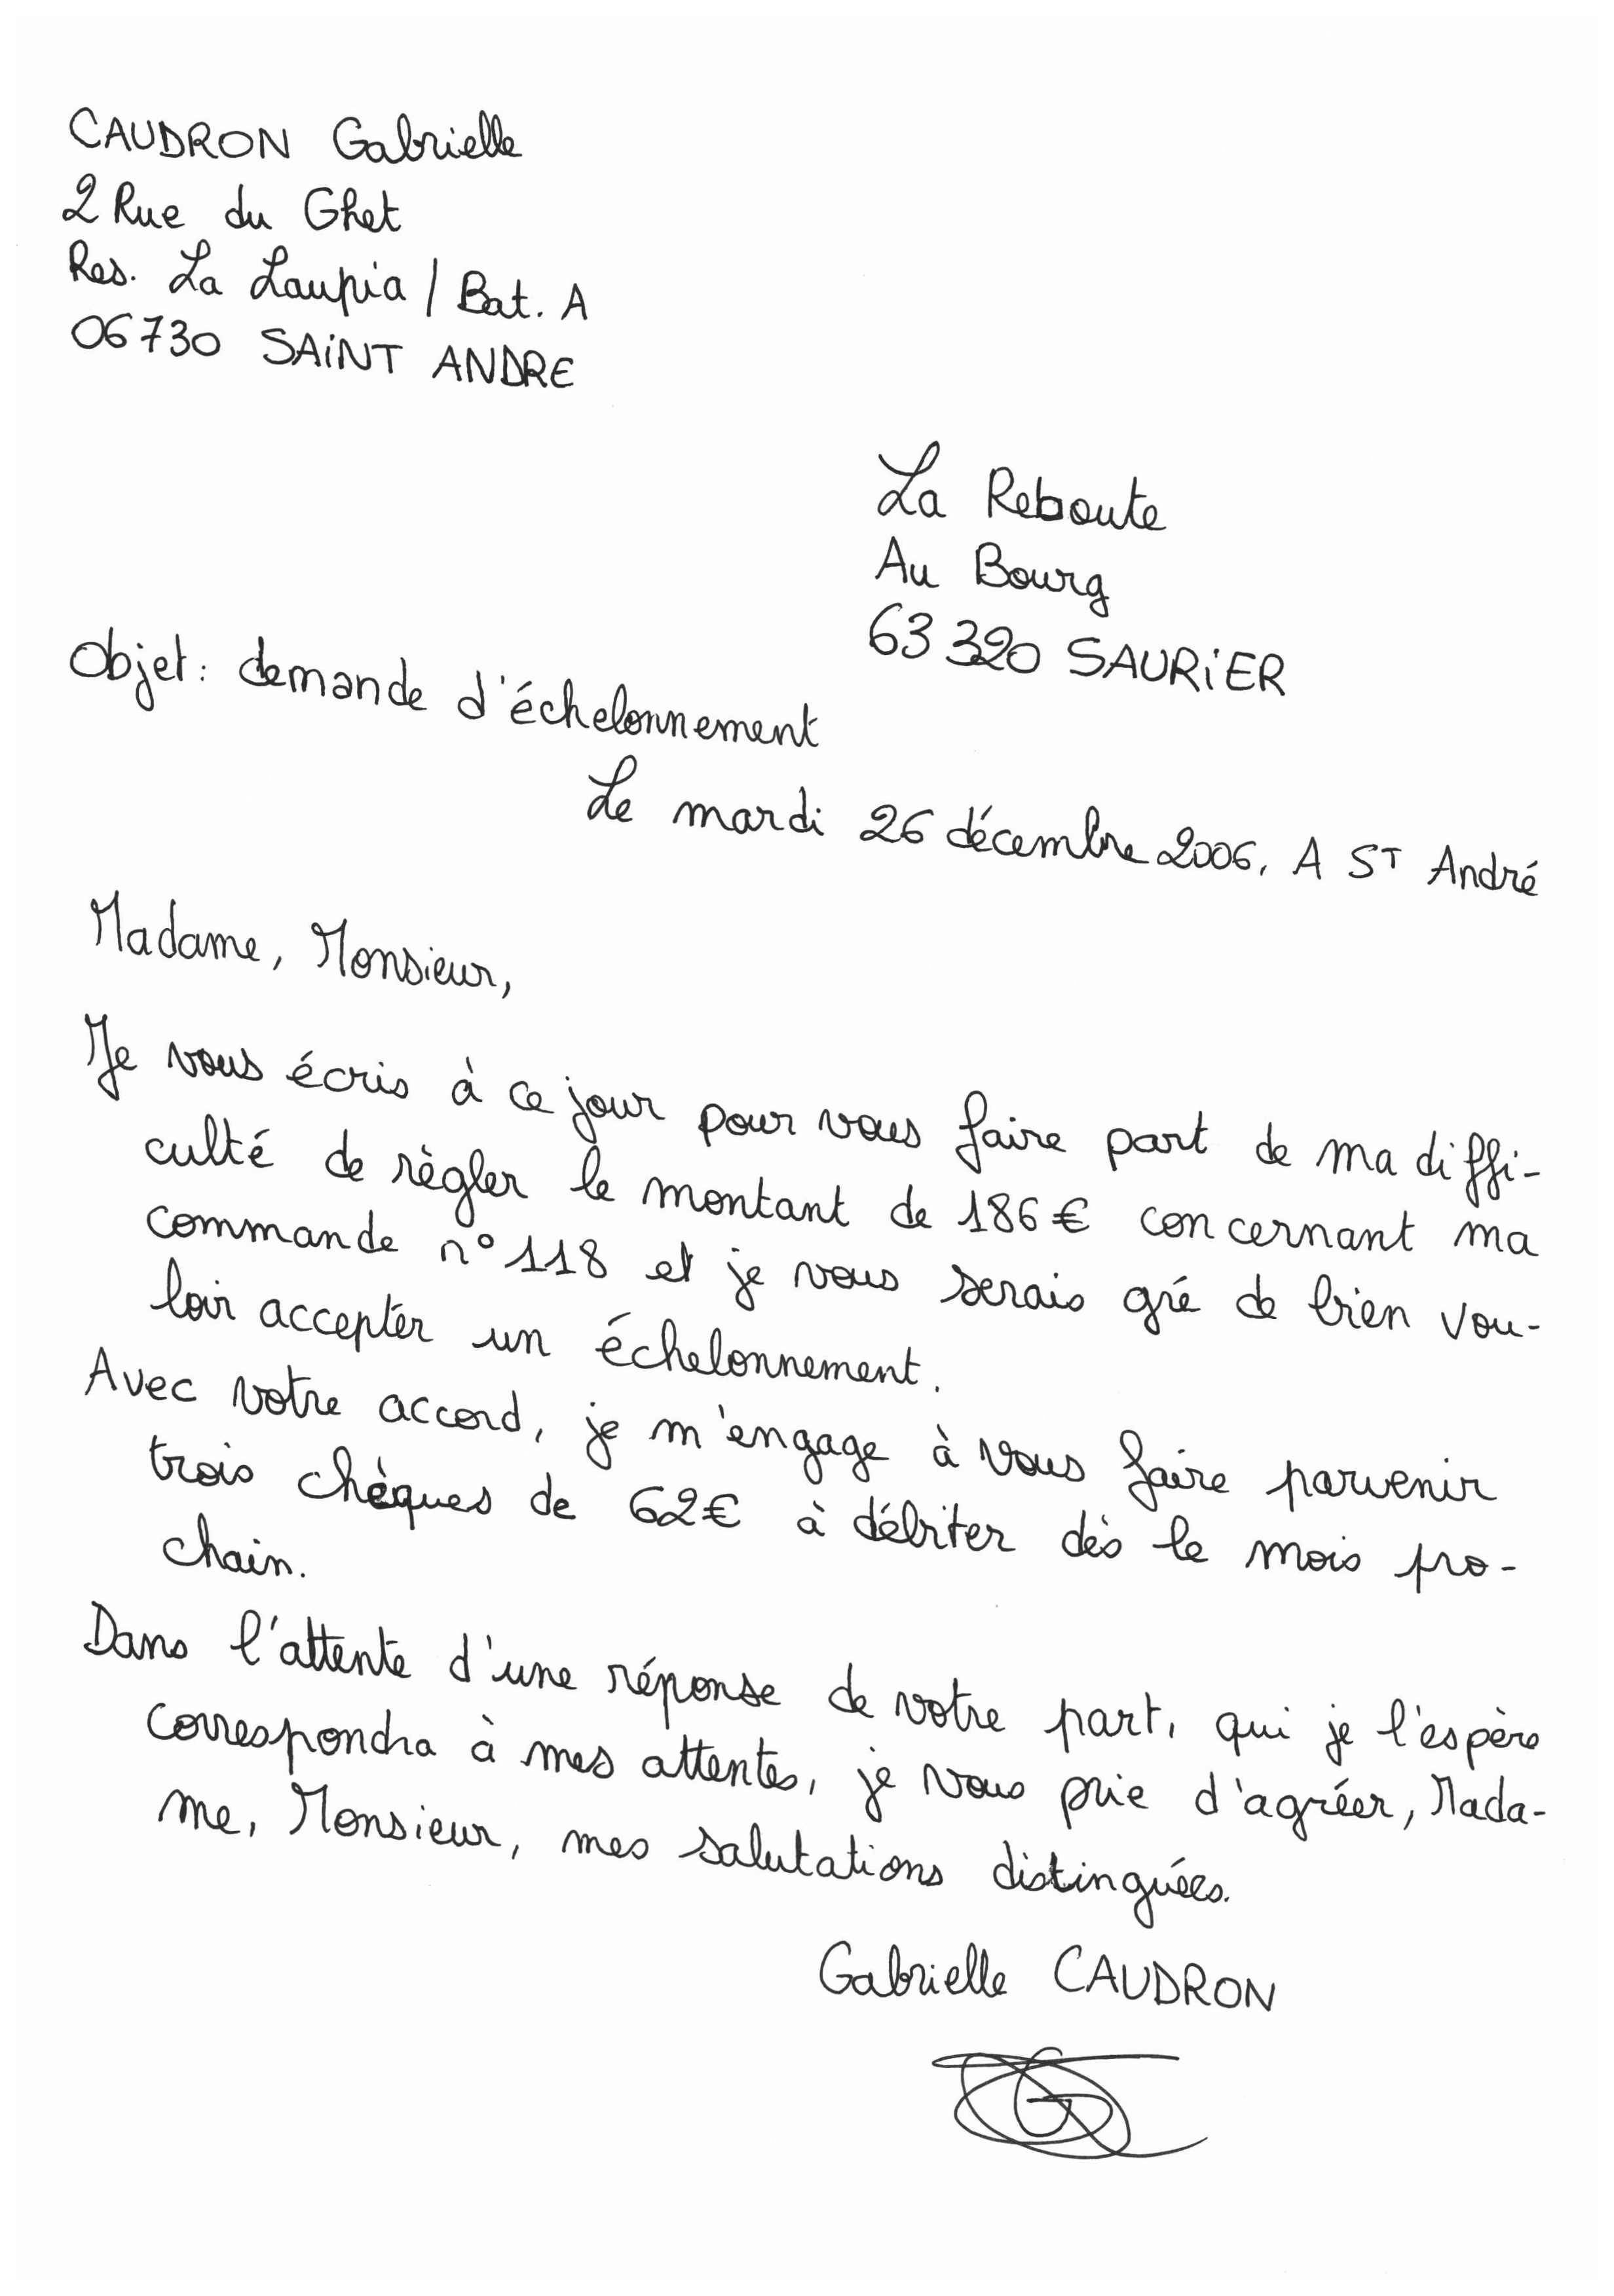 CAUDRON Gabrielle
2 Rue du Ghet
Res. La Laupia / Bat. A
06730 SAINT ANDRE
La Reboute
Au Bourg
63 320 SAURIER
Objet : demande d'échelonnement
Le mardi 26 décembre 2006, A ST André
Madame, Monsieur,
Je vous écris à ce jour pour vous faire part de ma diffi-
culté de règler le montant de 186 € concernant ma
commande n° 118 et je vous serais gré de bien vou-
loir accepter un échelonnement.
Avec votre accord, je m'engage à vous faire parvenir
trois chèques de 62€ à débiter dès le mois pro-
chain.
Dans l'attente d'une réponse de votre part, qui je l'espère
correspondra à mes attentes, je vous prie d'agréer, Mada-
me, Monsieur, mes salutations distinguées.
Gabrielle CAUDRON